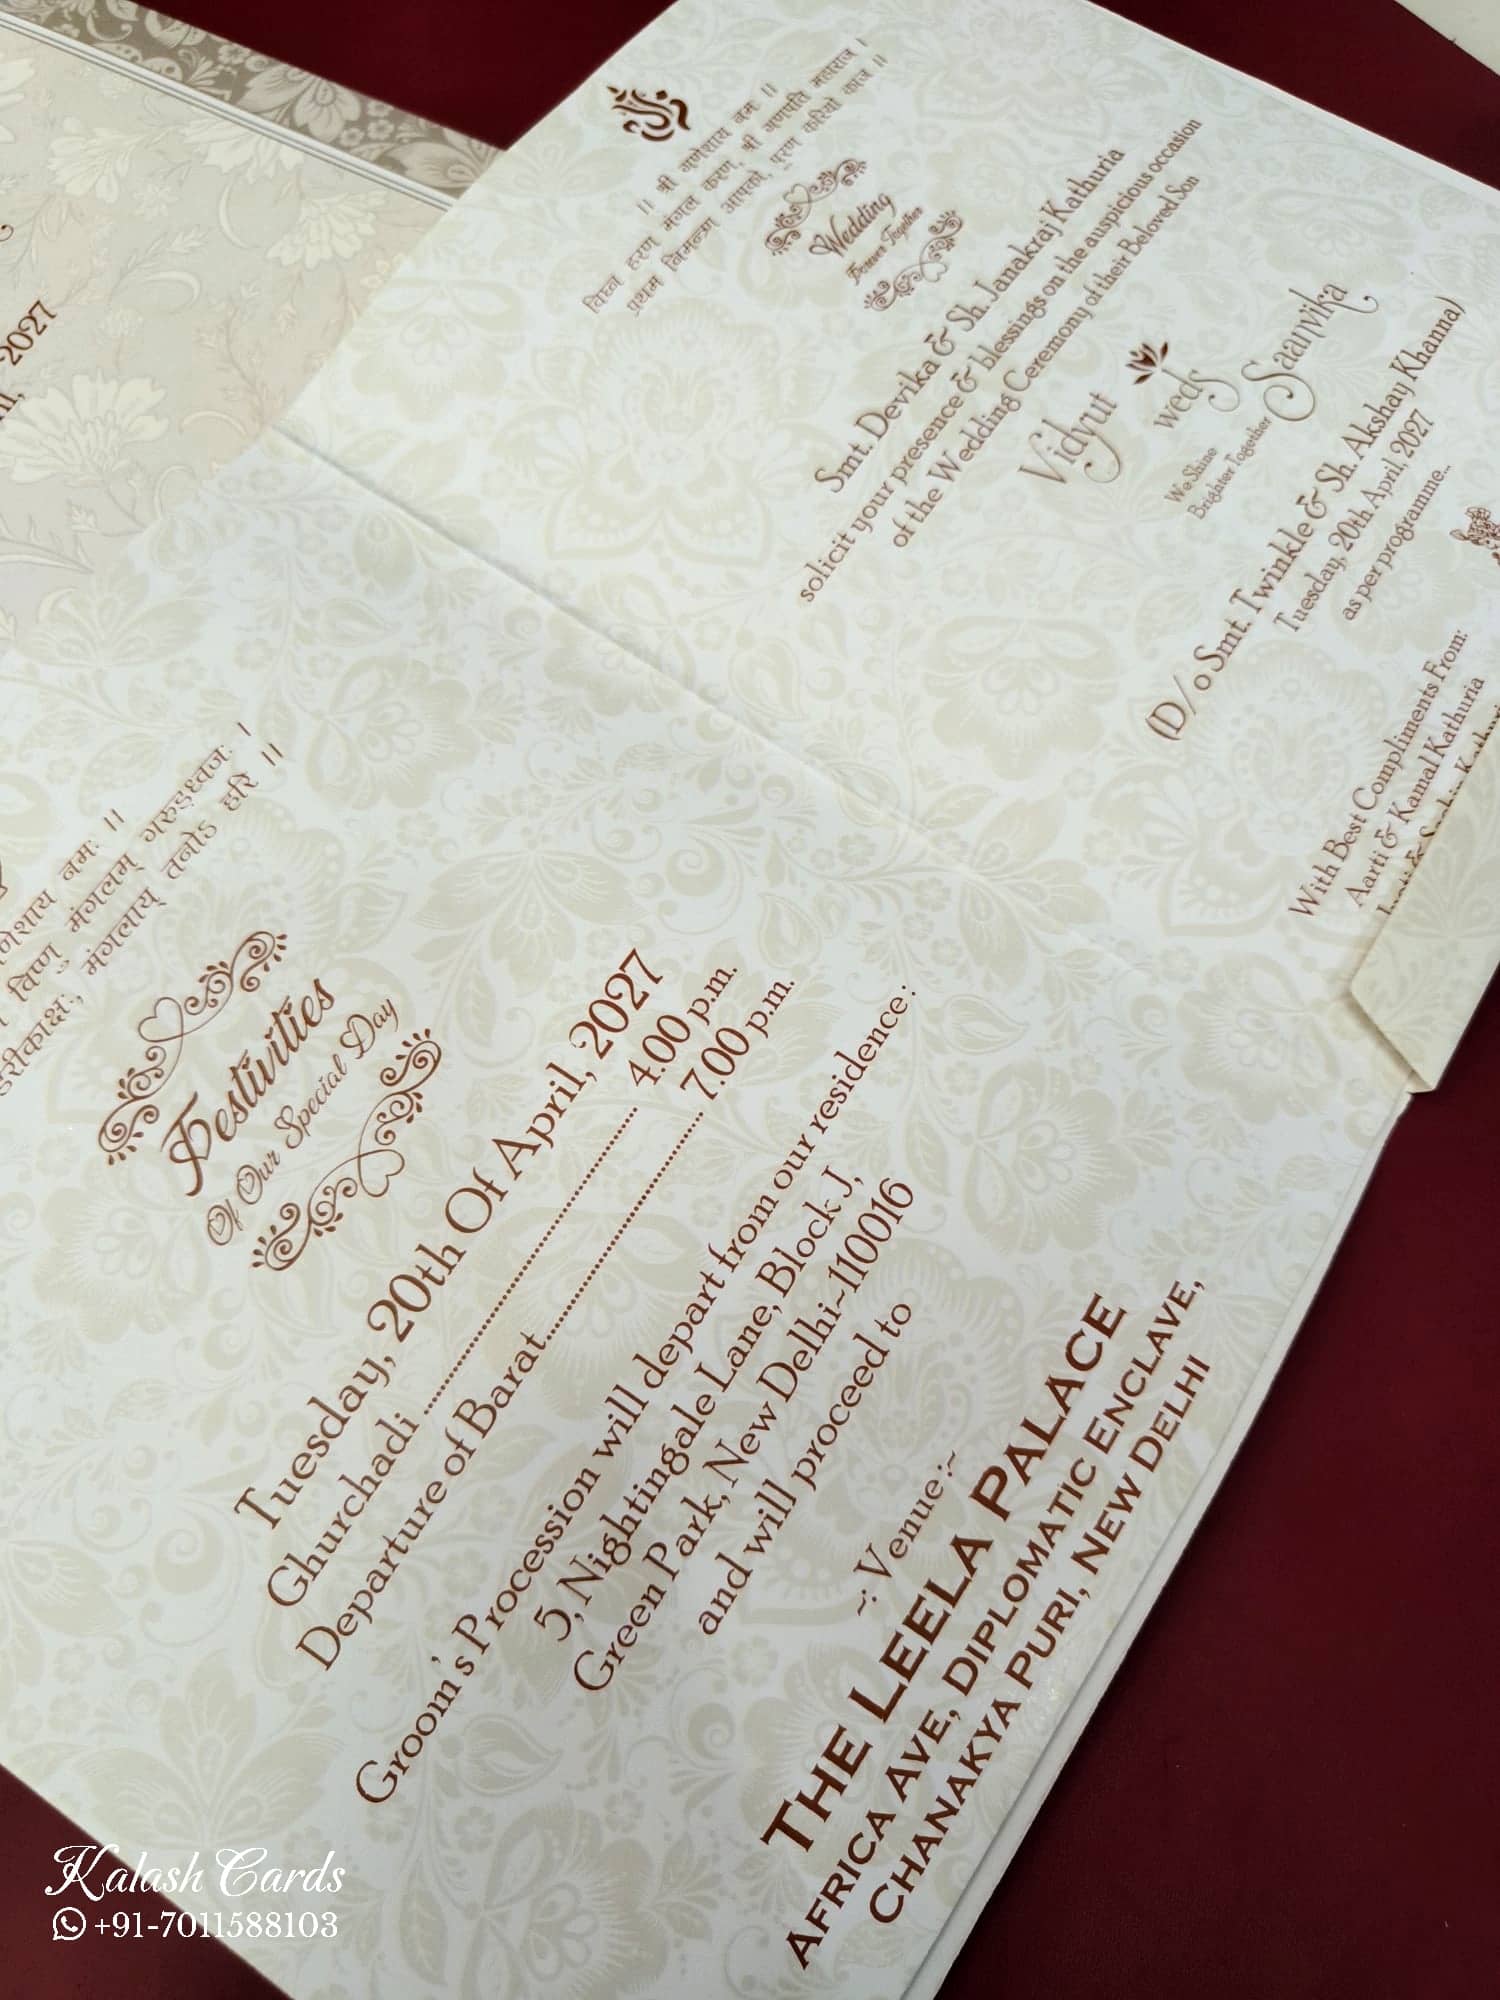 2027
।। श्री गणेशाय नमः ।।
विघ्न हरण मंगल करण, श्री गणपति महाराज ।
प्रथम निमन्त्रण आपको, पूरण करियो काज ।।
Wedding
Forever Together
Smt. Devika & Sh. Janakraj Kathuria
solicit your presence & blessings on the auspicious occasion
of the Wedding Ceremony of their Beloved Son
Vidyut
weds
We Shine
Brighter Together
Saanvika
(D/o Smt. Twinkle & Sh. Akshay Khanna)
Tuesday, 20th April, 2027
as per programme...
With Best Compliments From:
Aarti & Kamal Kathuria
नमः ।।
विष्णु मंगलम् गरुड़ध्वजः ।
मंगलाय् तनोऽ हरि ।।
Festivities
Of Our Special Day
Tuesday, 20th Of April, 2027
Ghurchadi ........................................ 4.00 p.m.
Departure of Barat........................... 7.00 p.m.
Groom's Procession will depart from our residence:
5, Nightingale Lane, Block J,
Green Park, New Delhi-110016
and will proceed to
-: Venue:-
THE LEELA PALACE
AFRICA AVE, DIPLOMATIC ENCLAVE,
CHANAKYA PURI, NEW DELHI
Kalash Cards
+91-7011588103